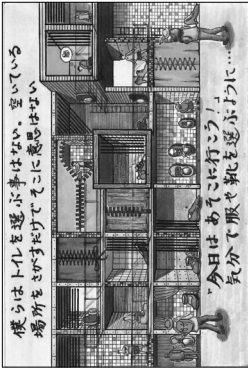 僕らはトイレを選ぶ事はない。空いている
場所をさがすだけで そこに意思はない
「今日は あそこに行こう!」
気分で服や靴を選ぶように…